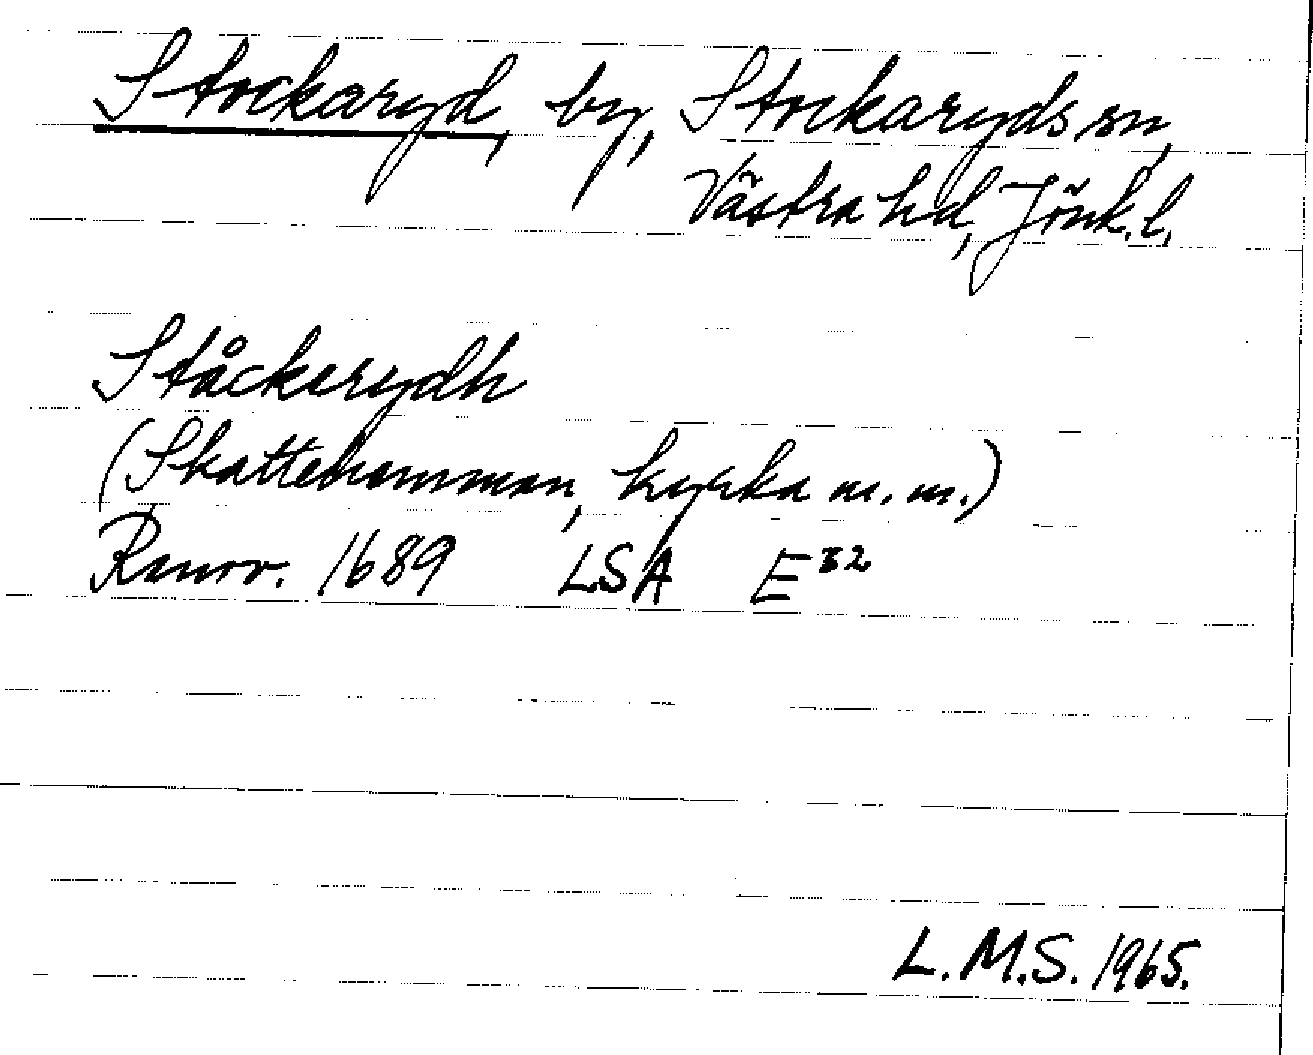 Stockaryd, by, Stockaryds sn,
Västra hd, Jönk. l.
Ståckerydh
(Skattehemman, kyrka m. m.)
Renov. 1689 LSA E 32
L.M.S. 1965.